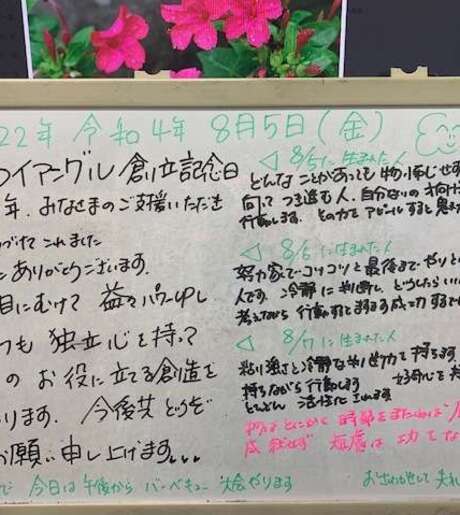 22年 令和4年 8月5日(金)
イアングル 創立記念日
年、みなさまのご支援いただき
づけてこれました
ありがとうございます。
目にむけて 益々パワーUPし
つも 独立心を持って
の お役に立てる創造を
ります。 今後共どうぞ
お願い申し上げます、、、
今日は午後から バーベキュー大会やります
◁ 8/5に生まれた人
どんなことがあっても物怖じせず
向って つき進む人、自分なりの
行動します。 その力を アピールすると
◁ 8/6に生まれた人
努力家でコツコツと最後まで やりと
人です。冷静に 判断し、どうしたらいい
考えながら 行動すとますます成功する
◁ 8/7に生まれた人
粘り強さと冷静な 力を持ちます
持ちながら行動します 好奇心を
どんどん 活性化 されます。
時節をまたねば
成就せず 短慮は 功でな